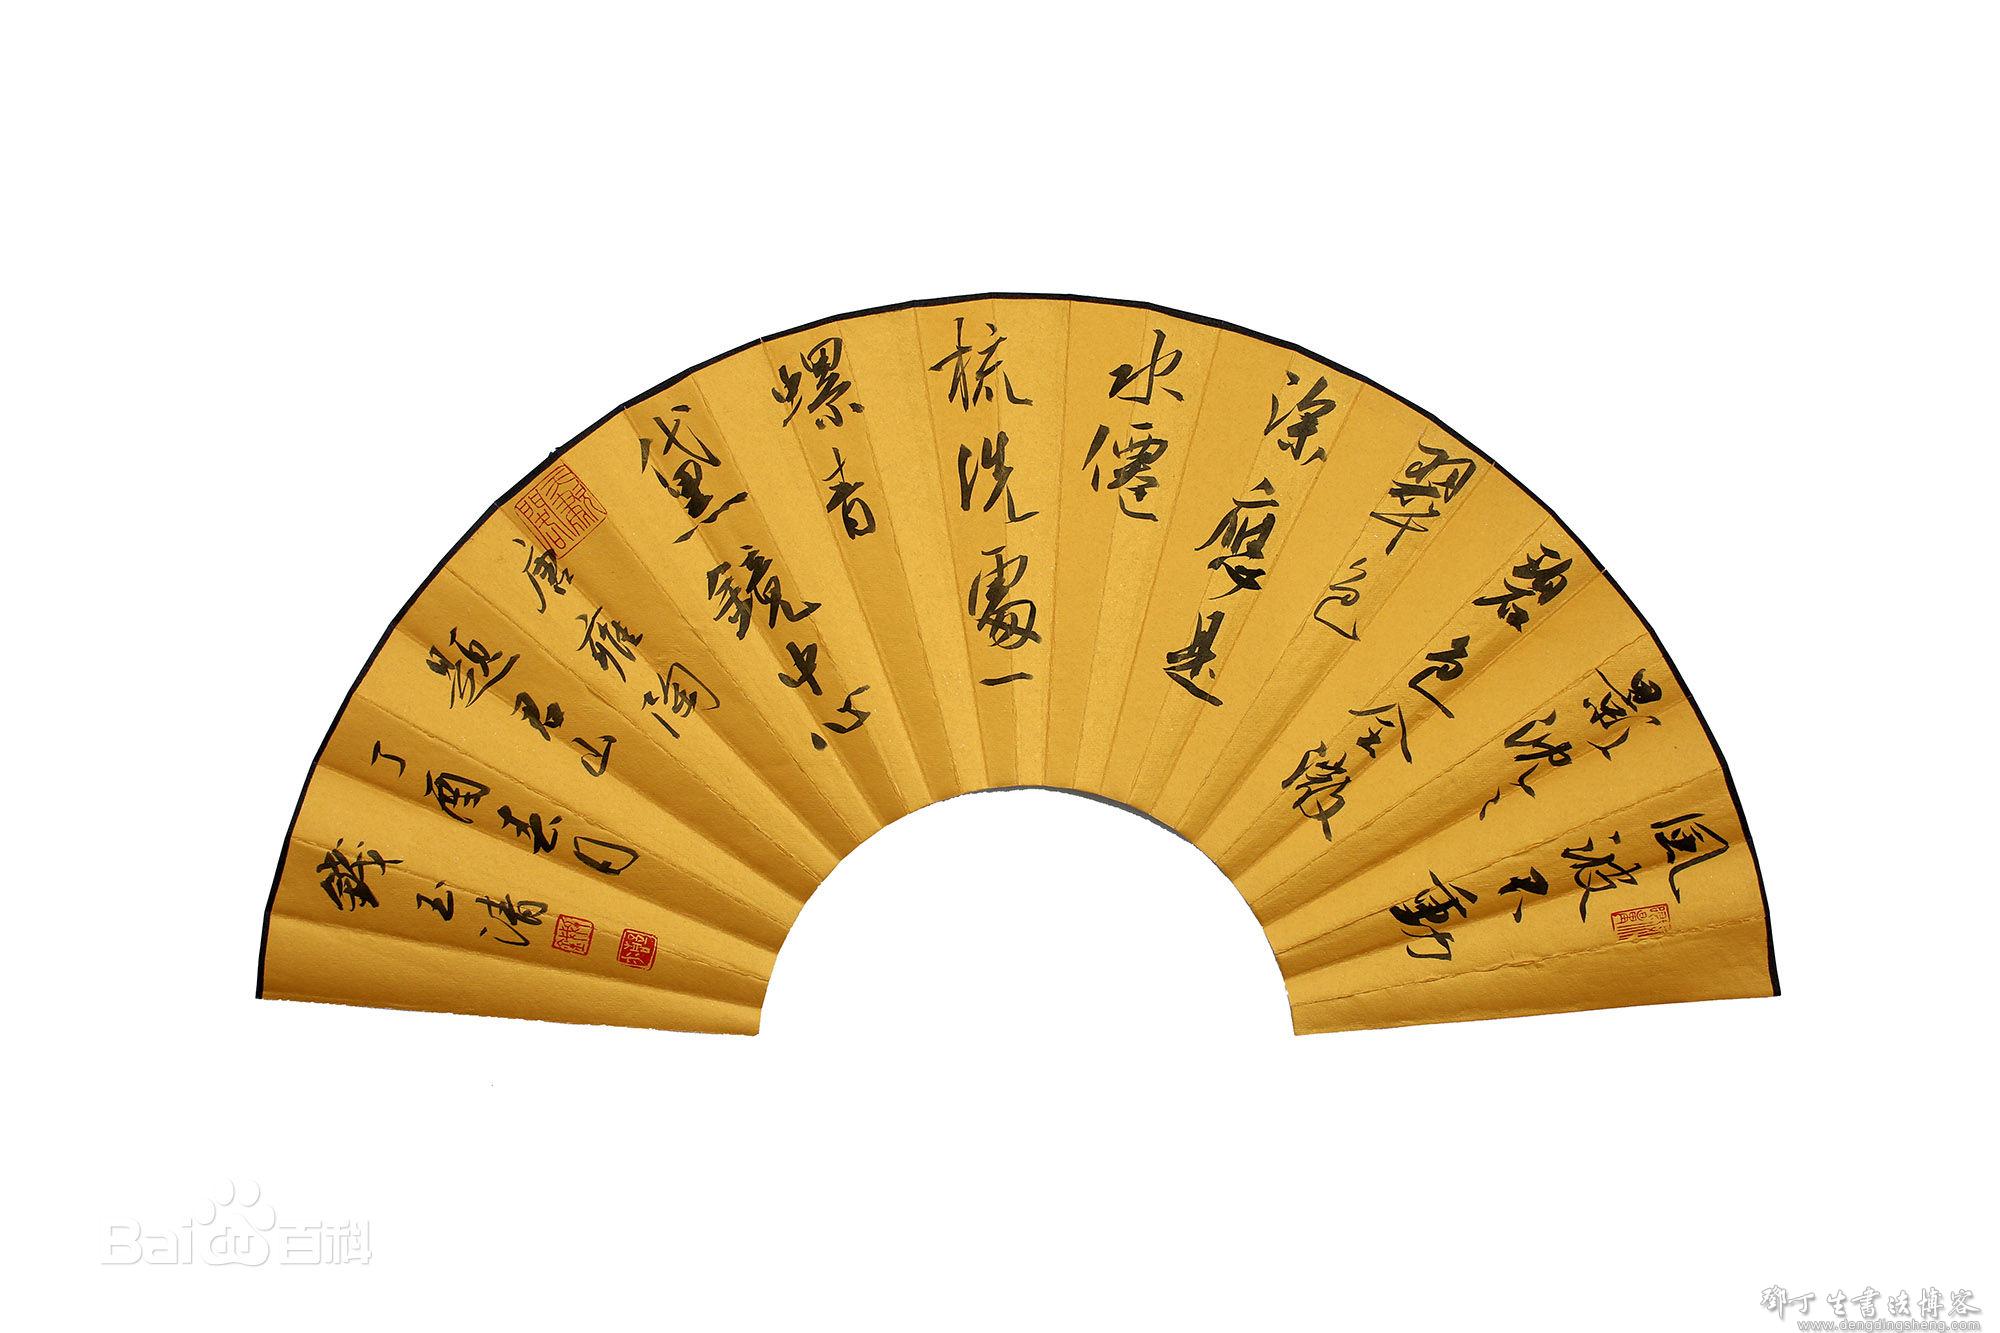 風波不動
影沈〻
碧色全微
翠色
深應是
水僊
梳洗處一
螺青
黛鏡中心
唐雍陶
題君山
丁酉春月
錢玉清
Bai百科
鄧丁生書法博客
www.dengdingsheng.com